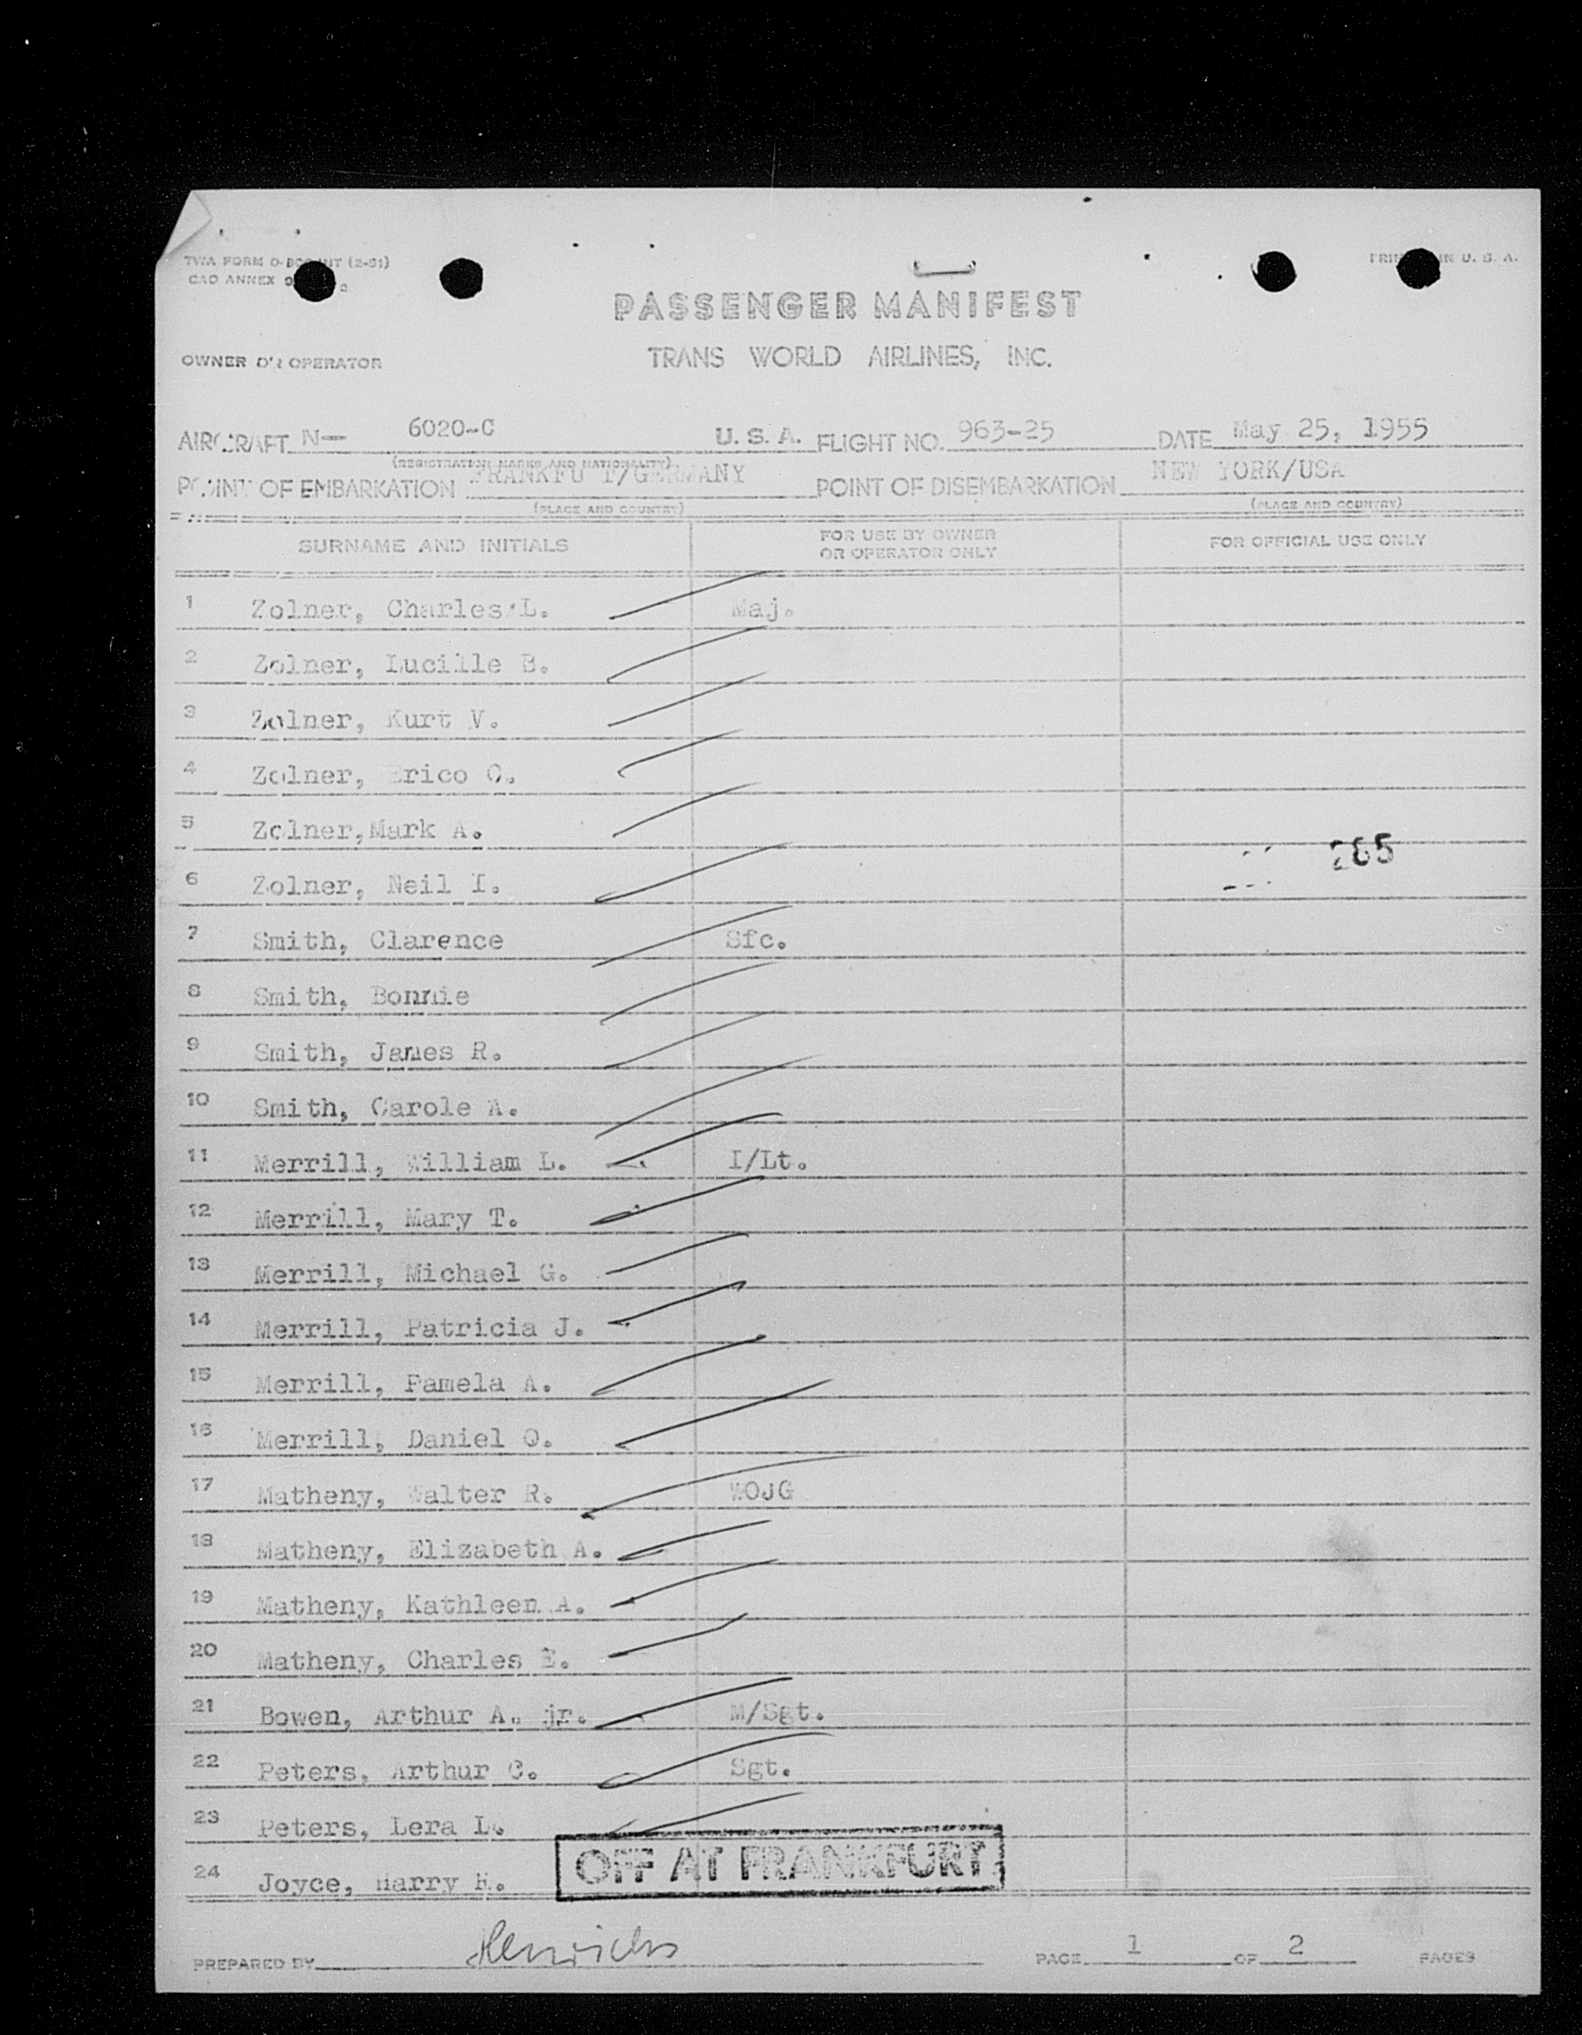 TWA FORM
CAO ANNEX 9
PRINTED IN U. S. A.
PASSENGER MANIFEST
OWNER OR OPERATOR TRANS WORLD AIRLINES, INC.
AIRCRAFT N— 6020-C U. S. A. FLIGHT NO. 963-25 DATE May 25, 1955
(REGISTRATION MARKS AND NATIONALITY)
POINT OF EMBARKATION FRANKFU T/GERMANY POINT OF DISEMBARKATION NEW YORK/USA
(PLACE AND COUNTRY) (PLACE AND COUNTRY)
SURNAME AND INITIALS FOR USE BY OWNER OR OPERATOR ONLY FOR OFFICIAL USE ONLY
1 Zolner, Charles L. Maj.
2 Zolner, Lucille B.
3 Zolner, Kurt V.
4 Zolner, Erico C.
5 Zolner,Mark A.
265
6 Zolner, Neil I.
7 Smith, Clarence Sfc.
8 Smith, Bonnie
9 Smith, James R.
10 Smith, Carole A.
11 Merrill, William L. I/Lt.
12 Merrill, Mary T.
13 Merrill, Michael G.
14 Merrill, Patricia J.
15 Merrill, Pamela A.
16 Merrill, Daniel O.
17 Matheny, Walter R. WOJG
18 Matheny, Elizabeth A.
19 Matheny, Kathleen A.
20 Matheny, Charles E.
21 Bowen, Arthur A. jr. M/Sgt.
22 Peters, Arthur C. Sgt.
23 Peters, Lera L.
24 Joyce, Harry H. OFF AT FRANKFURT
PREPARED BY Henrichs PAGE 1 OF 2 PAGES